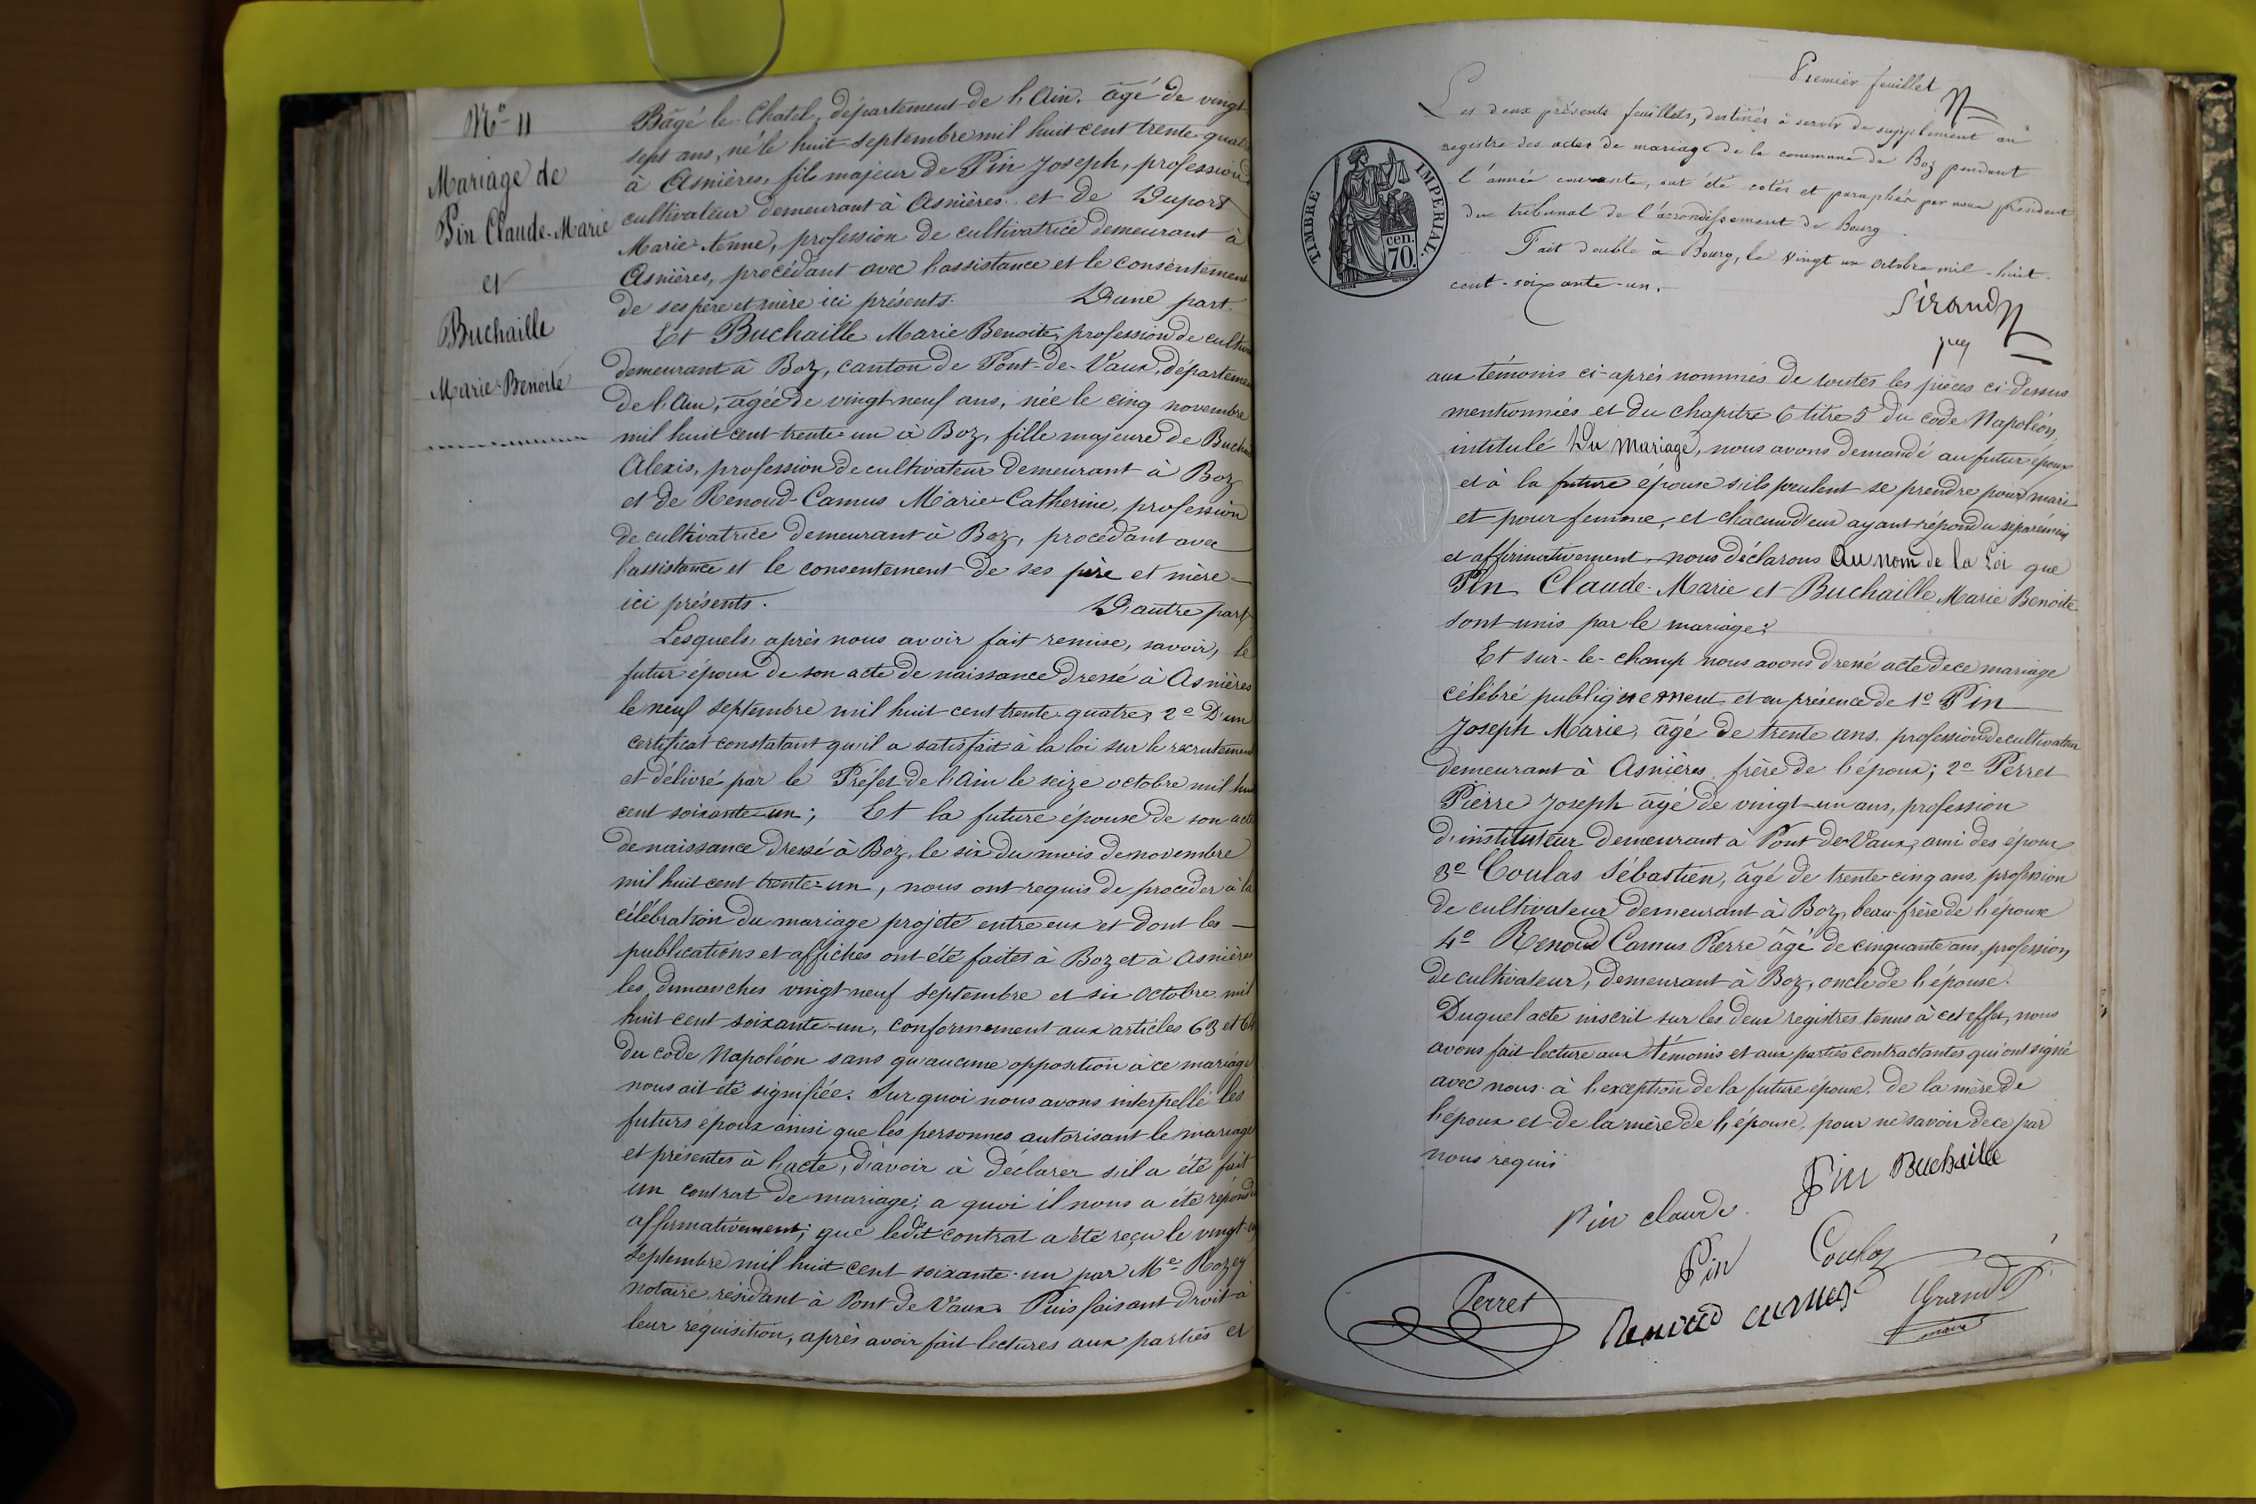 No 11
Mariage de
Pin Claude-Marie
et
Buchaille
Marie-Benoite
Bâgé le Chatel, département de l'Ain. âgé de vingt
sept ans, né le huit septembre mil huit cent trente quatre
à Asnières, fils majeur de Pin Joseph, profession de
cultivateur demeurant à Asnières et de Duport
Marie-Anne, profession de cultivatrice demeurant à
Asnières, procédant avec l'assistance et le consentement
de ses père et mère ici présents. D'une part.
Et Buchaille Marie Benoite, profession de cultiv
demeurant à Boz, canton de Pont-de-Vaux, départemen
de l'Ain, âgée de vingt neuf ans, née le cinq novembre
mil huit cent trente-un à Boz, fille majeure de Bucha
Alexis, profession de cultivateur demeurant à Boz
et de Renoud-Camus Marie-Catherine, profession
de cultivatrice demeurant à Boz, procédant avec
l'assistance et le consentement de ses père et mère
ici présents. D'autre part.
Lesquels, après nous avoir fait remise, savoir, le
futur époux de son acte de naissance dressé à Asnières
le neuf septembre mil huit cent trente-quatre, 2º D'un
certificat constatant qu'il a satisfait à la loi sur le recrutement
et délivré par le Préfet de l'Ain le seize octobre mil hui
cent soixante-un; Et la future épouse de son acte
de naissance dressé à Boz, le six du mois de novembre
mil huit cent trente-un, nous ont requis de procéder à la
célébration du mariage projeté entre eux et dont les
publications et affiches ont été faites à Boz et à Asnières
les dimanches vingt-neuf septembre et six octobre mil
huit cent soixante-un, conformement aux articles 63 et 64
du code Napoléon sans qu'aucune opposition à ce mariage
nous ait été signifiée. Sur quoi nous avons interpellé les
futurs époux ainsi que les personnes autorisant le mariage
et présentes à l'acte, d'avoir à déclarer s'il a été fait
un contrat de mariage; a quoi il nous a été répondu
affirmativement; que ledit contrat a été reçu le vingt-
septembre mil huit cent soixante-un par Me Rozey
notaire résidant à Pont de Vaux. Puis faisant droit à
leur réquisition, après avoir fait lectures aux parties et
Premier feuillet
Les deux présents feuillets, destinés à servir de supplément au
registre des actes de mariage de la commune de Boz pendant
l'année courante, ont été cotés et paraphés par nous président
du tribunal de l'arrondissement de Bourg.
Fait double à Bourg, le vingt un octobre mil-huit-
cent-soixante-un.
TIMBRE IMPERIAL.
cen.
70.
Sirand
aux témoins ci-après nommés de toutes les pièces ci-dessus
mentionnées et du chapitre 6 titre 5 du code Napoléon,
intitulé Du mariage, nous avons demandé au futur époux
et à la future épouse s'ils veulent se prendre pour mari
et pour femme, et chacun d'eux ayant répondu séparément
et affirmativement, nous déclarons Au nom de la Loi que
Pin Claude-Marie et Buchaille Marie Benoite
sont unis par le mariage.
Et sur-le-champ nous avons dressé acte de ce mariage
célébré publiquement et en présence de 1º Pin
Joseph Marie, âgé de trente ans, profession de cultivateur
demeurant à Asnières frère de l'époux; 2º Perret
Pierre Joseph âgé de vingt-un ans, profession
d'instituteur demeurant à Pont de Vaux, ami des époux
3º Coulas Sébastien, âgé de trente-cinq ans, profession
de cultivateur demeurant à Boz, beau-frère de l'époux
4º Renoud Camus Pierre âgé de cinquante ans, profession
de cultivateur, demeurant à Boz, oncle de l'épouse.
Duquel acte inscrit sur les deux registres tenus à cet effet, nous
avons fait lecture aux témoins et aux parties contractantes qui ont signé
avec nous à l'exception de la future épouse, de la mère de
l'époux et de la mère de l'épouse, pour ne savoir de ce par
nous requis
Pin Buchaille
Pin claude
Pin Coulas
Perret Renoud camus Grand P
maire